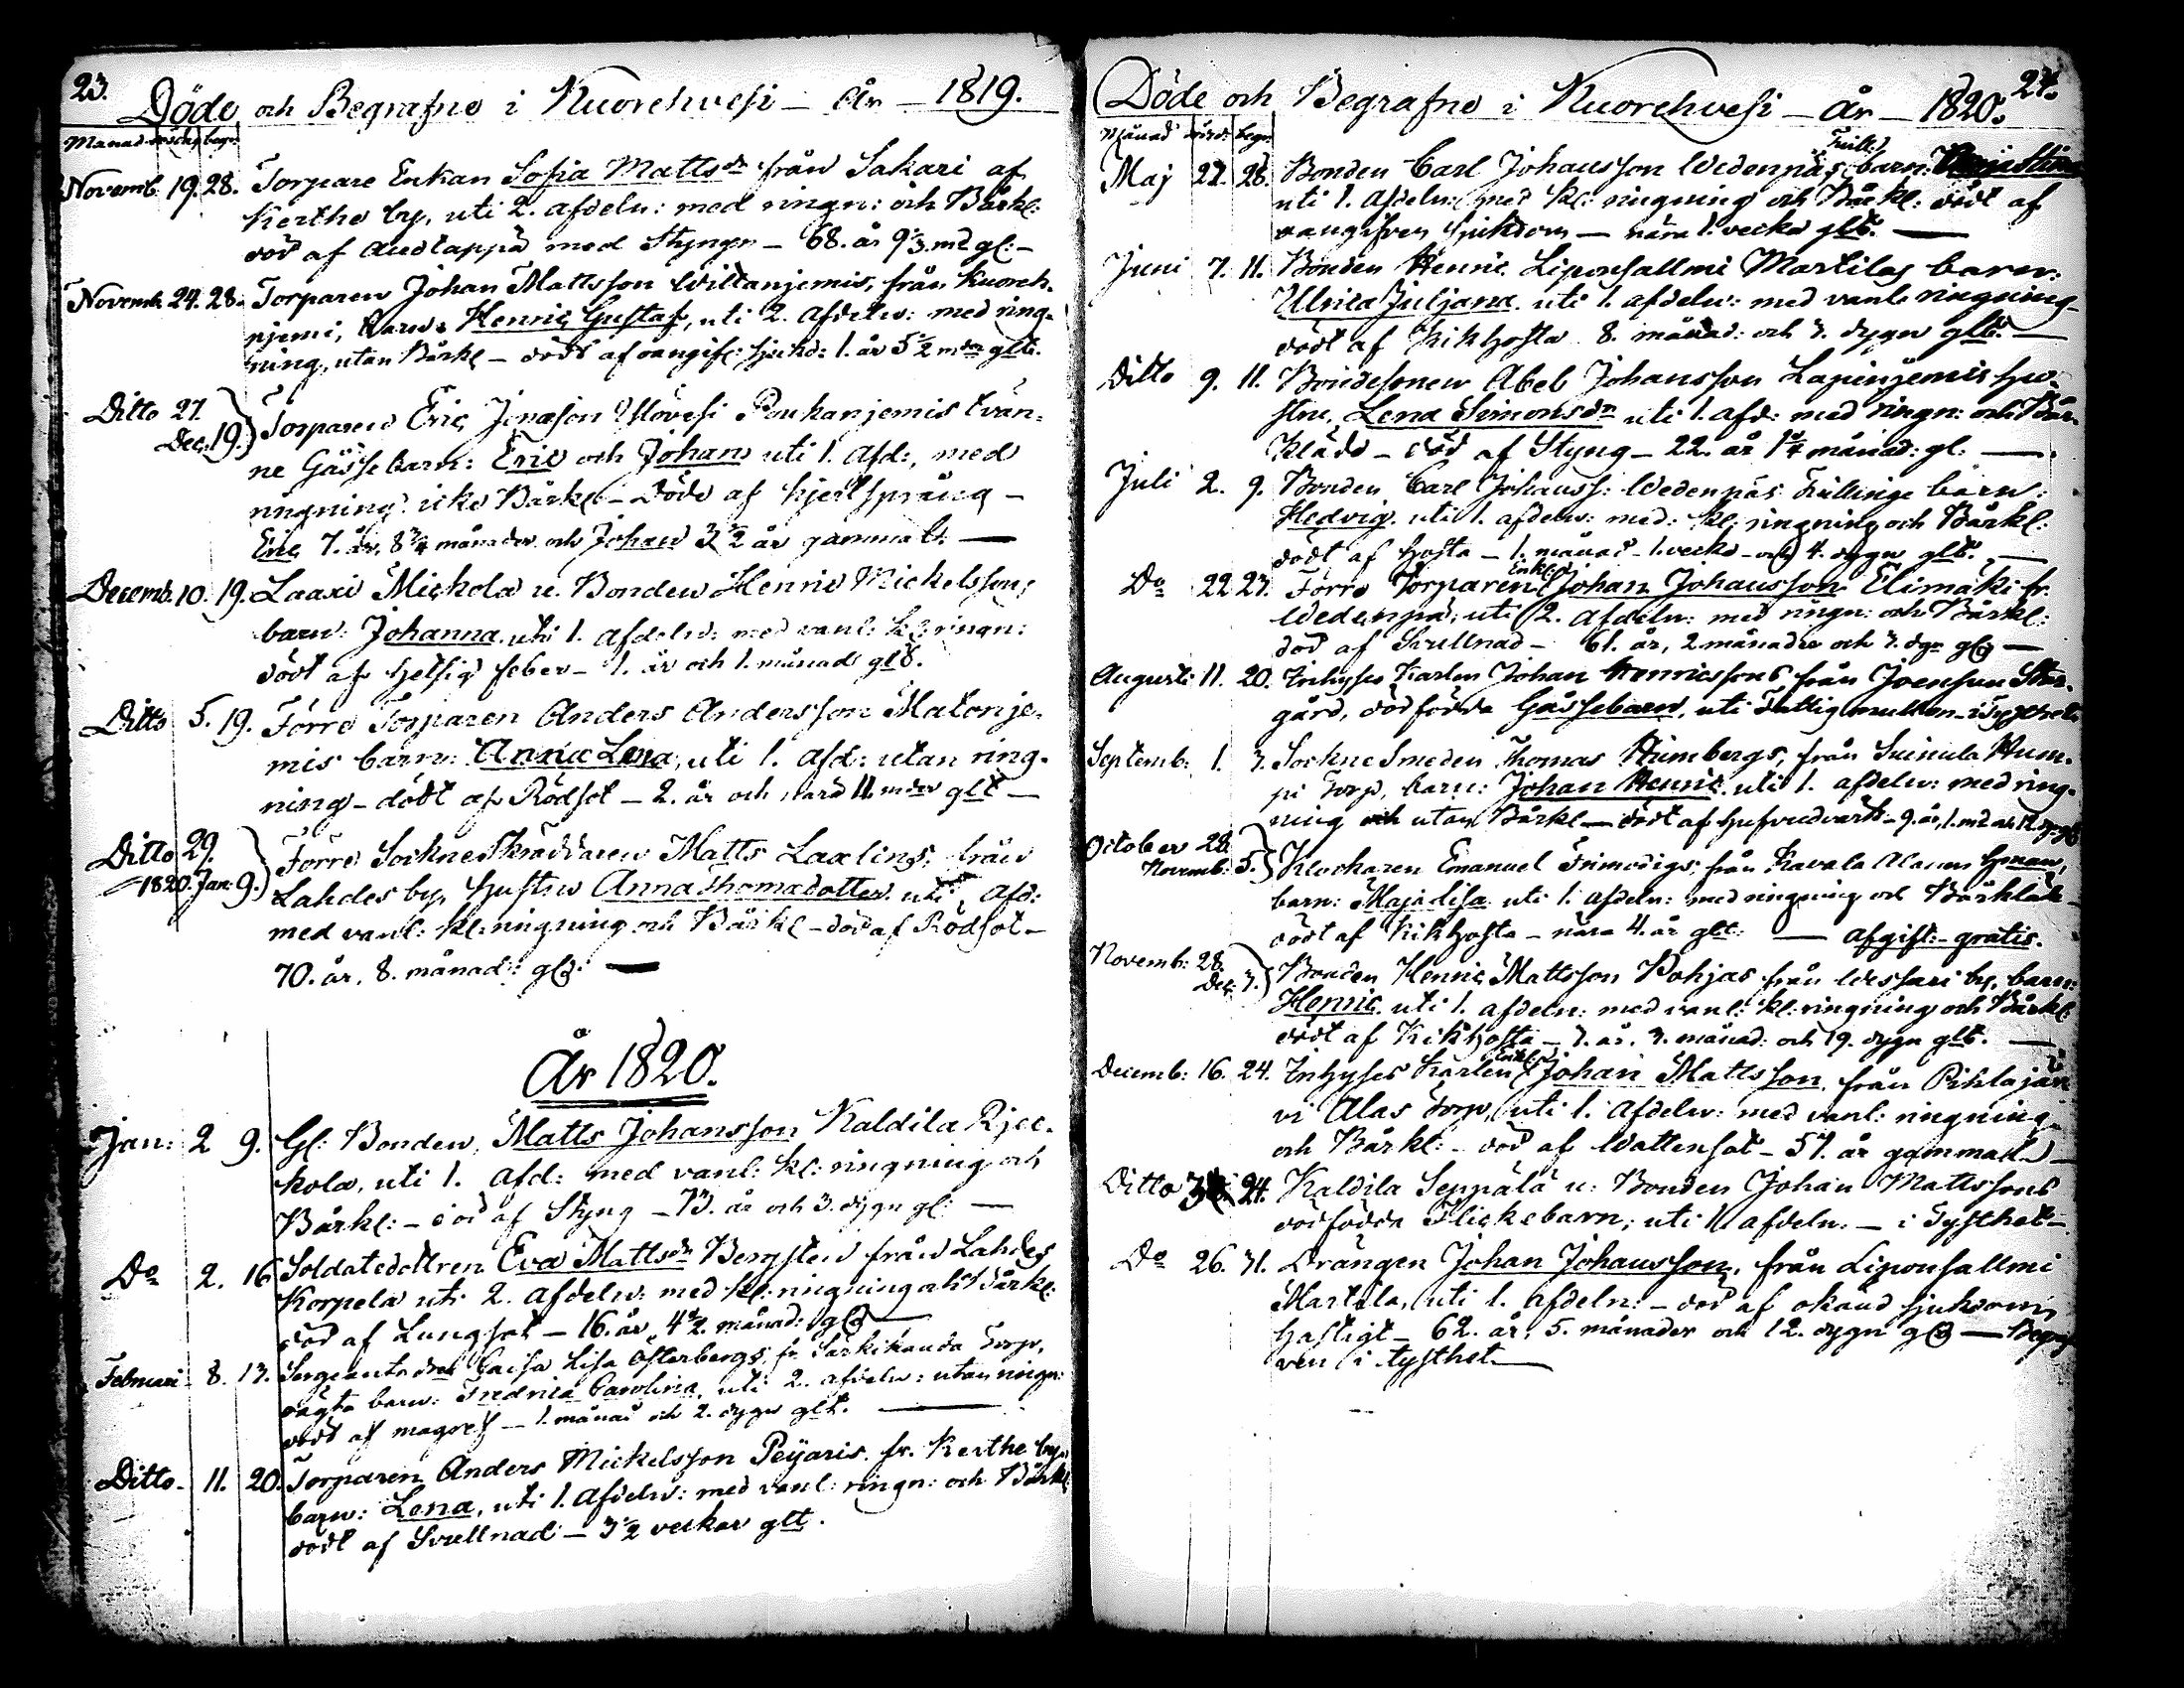 23.
Döde och Begrafne i Kuorehvesi – år – 1819.
Månad död begr.
Novemb. 19. 28. Torpare Enkan Sofia Mattsdr från Sakari af
Kerthe by, uti 2. afdeln: med ringn: och Bårkl:
död af Andtäppa med Styngn – 68. år 9 1/3 md gl: –
Novemb. 24. 28. Torparen Johan Mattsson Wiltanjemis, från Kuoreh-
njemi, barn: Henric Gustaf, uti 2. afdeln: med ring-
ning, utan Bårkl – dödt af oangif: sjukd: 1. år 5 1/2 mdr glt.
Ditto 27. Dec. 19. Torparen Eric Jönsson Ylövesi Poukanjemis tvän-
ne Gåsse barn: Eric och Johan uti 1. Afd:, med
ringning icke Bårkl – Döde af hjertsprång –
Eric 7. år, 8 3/4 månader och Johan 3 1/2 år gammalt. —
Decemb. 10. 19. Laaxi Mickola u. Bonden Henric Mickelssons
barn: Johanna uti 1. afdeln: med vanl: kl: ringn:
dödt af hetsig feber – 1. år och 1. månad glt.
Ditto 5. 19. Förre Torparen Anders Andersson Matonje-
mis barn: Anna Lena, uti 1. afd: utan ring-
ning – dödt af Rödsot – 2. år och nära 11. mdr glt —
Ditto 29. 1820. Jan: 9. Förre Sockne Skräddaren Matts Laxlings, från
Lahdes by, hustru Anna Thomasdotter uti Afd:
med vanl: kl: ringning och Bårkl – död af Rödsot –
70. år, 8. månad: gl: —
År 1820.
Jan: 2 9. Gl: Bonden, Matts Johansson Kaldila Rjec-
kola, uti 1. Afd: med vanl: kl: ringning och
Bårkl: – död af Styng – 73. år och 3. dygn gl: —
Do 2. 16 Soldatedottren Eva Mattsdr Bergsten från Lahdes
Korpela uti 2. afdeln: med kl: ringning och Bårkl:
död af Lungsot – 16. år 4 1/2 månad: gl —
Februari 8. 13. Sergeants Caisa Lisa Österbergs, fr Särkikanda Torp,
oägta barn: Fredrica Carolina, uti 2. afdeln: utan ringn:
dödt af magref – 1. månad och 2. dygn glt. —
Ditto – 11. 20. Torparen Anders Mickelsson Peijaris, fr. Kerthe by,
barn: Lena, uti 1. afdeln: med vanl: ringn: och Bårkl:
dödt af Svullnad – 3 1/2 veckor glt.
24.
Döde och Begrafne i Kuorehvesi – år – 1820.
Månad död. begr.
Maj 27. 28. Bonden Carl Johansson Wedenpäs Trill: barn:
uti 1. afdeln: med kl: ringning och Bårkl: dödt af
oangifven sjukdom — nära 1. vecka glt. —
Juni 7. 11. Bonden Henric Liponsallmi Martilas barn:
Ulrica Juljana uti 1. afdeln: med vanl: ringning
dödt af Kikhosta 8. månad: och 3. dygn glt. —
Ditto 9. 11. Bondesonen Abel Johansson Lapinjemis hu-
stru, Lena Simonsdr uti 1. afd: med ringn: och Bår-
kläde – död af Styng – 22. år 1 3/4 månad: gl: —
Juli 2. 9. Bonden Carl Johanss: Wedenpäs Trillinge barn:
Hedvig uti 1. afdeln: med: kl: ringning och Bårkl:
dödt af hosta – 1. månad – 1. vecka – och 4. dygn glt. —
Do 22. 23. Förre Torparen Enkl: Johan Johansson Elimäki fr.
Wedenpä, uti 2. afdeln: med ringn: och Bårkl:
död af Svullnad – 61. år, 2 månader och 3. dgn gl —
Augusti 11. 20. Inhyses Karlen Johan Henricssons från Joensuu Stor-
gård, dödfödda Gåssebarn, uti Fattig mullen – i Tysthet.
Septemb: 1. 3. Sockne Smeden Thomas Humbergs, från Suinula Hum-
pi Torp, barn: Johan Henric uti 1. afdeln: med ring-
ning och utan Bårkl — dödt af hufvudvärk – 9. år, 1. md och 12. dygn
October 28. Novemb: 5. Klockaren Emanuel Frimodigs, från Kavala Alanen hman,
barn: Maja Lisa uti 1. afdeln: med ringning och Bårkläde
dödt af Kikhosta – nära 4. år glt: — afgift: – gratis.
Novemb: 28. Dec: 3. Bonden Henric Mattsson Pohjas från Wessari by, barn:
Henric uti 1. afdeln: med vanl: kl: ringning och Bårkl
dödt af Kikhosta – 7. år, 3. månad: och 19. dygn glt. —
Decemb: 16. 24. Inhyses Karlen Enkl: Johan Mattsson från Pihlajär-
vi Alas Torp, uti 1. afdeln: med vanl: ringning
och Bårkl: – död af Wattensot – 57. år gammal —
Ditto 24. Kaldila Seppälä u: Bonden Johan Mattssons
dödfödda Flickebarn, uti 1 afdeln. – i Tysthet –
Do 26. 31. Drängen Johan Johansson, från Liponsallmi
Martila, uti 1. afdeln: – död af okänd sjukdom,
hastigt – 62. år, 5. månader och 12. dygn gl — Begraf-
ven i tysthet —